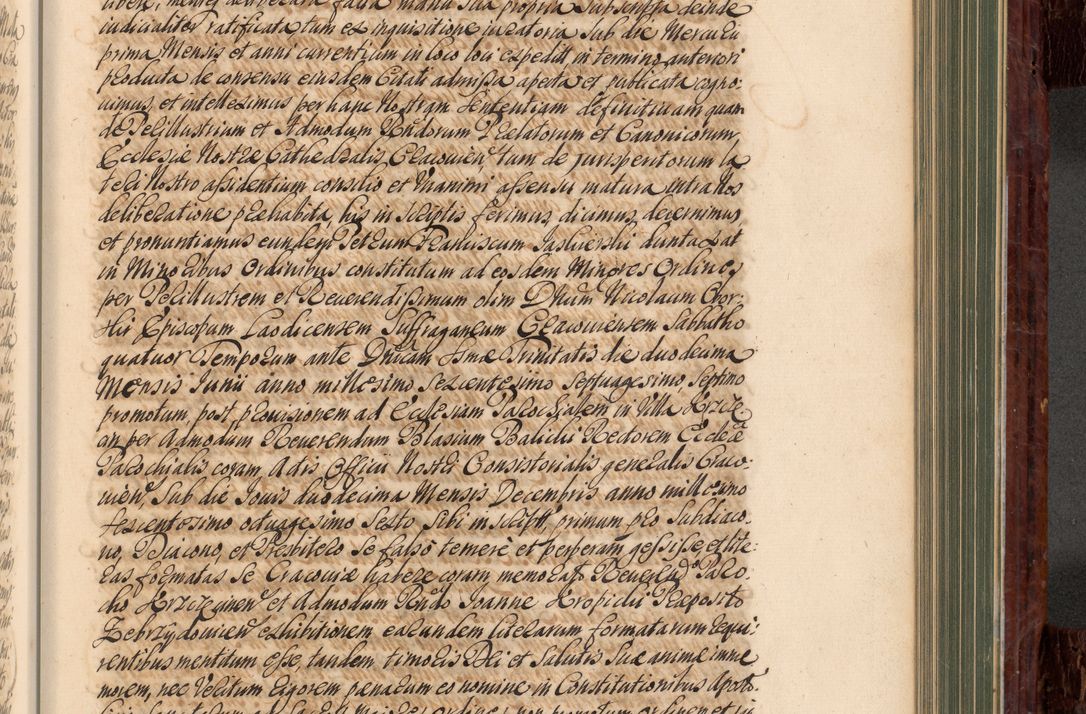 liberè, mente deliberata facta manu sua propria subscripta deinde
iudicialiter ratificata tum ex inquisitione iuratoria sub die Mercurii
prima Mensis et anni currentium in loco loci expedit, in termino anteriori
producta de consensu eiusdem Citati admissa aperta et publicata cogno-
uimus, et intelleximus per hanc Nostram sententiam definitiuam quam
de Perillustrium et Admodum Rndorum Praelatorum et Canonicorum
Ecclesiae Nostrae Cathedralis Cracouien, tum de jurisperitorum la
teri Nostro assidentium consilio et Vnanimi assensu matura intra Nos
deliberatione praehabita his in scriptis ferimus, dicimus, decernimus
et pronuntiamus eundem Petrum Franciscum duntaxat
in Minoribus Ordinibus constitutum ad eosdem Minores Ordines
per Perillustrem et Reuerendissimum olim Dnum Nicolaum Obor-
ski Episcopum Laodicensem Suffraganeum Cracouiensem Sabbatho
quatuor Temporum ante Dnicam Ssmae Trinitatis die duodecima
Mensis Iunii anno millesimo sexcentesimo septuagesimo septimo
promotum, post prouisionem ad Ecclesiam Parochialem in Villa Krzcię
cin per Admodum Reuerendum Blasium Balicki Rectorem Eccleae
Parochialis coram Actis Officii Nostri Consistorialis generalis Craco-
uien, sub die Iouis duodecima Mensis Decembris anno millesimo
sexcentesimo octuagesimo sexto sibi in script, primum pro Subdiaco-
no, Diacono, et Presbitero se falsò temerè et perperam gessisse, et lite-
ras formatas se Cracouiae habere coram memorato Reuerendo Paro-
cho Krzcięcinen et Admodum Rndo Ioanne Kropidli Praeposito
Zebrzydouien exhibitionem earundem literarum formatarum requi-
rentibus mentitum esse, tandem timoris Dei et Salutis suae animae imme
morem, nec Veritum rigorem paenarum eo nomine in Constitutionibus Aposto-